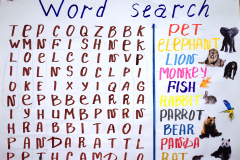 Word search
T E D C O Q Z B B K
W M N F I S H N E K
L O E L C C I N V P
I N L N S O C L P I
O K E I X Y I Q A G
N E P B B E A R R A
T Y H U M B P N R R
H R A B B I T A O I
P A N D A R A T T L
PET
ELEPHANT
LION
MONKEY
FISH
RABBIT
PARROT
BEAR
PANDA
RAT